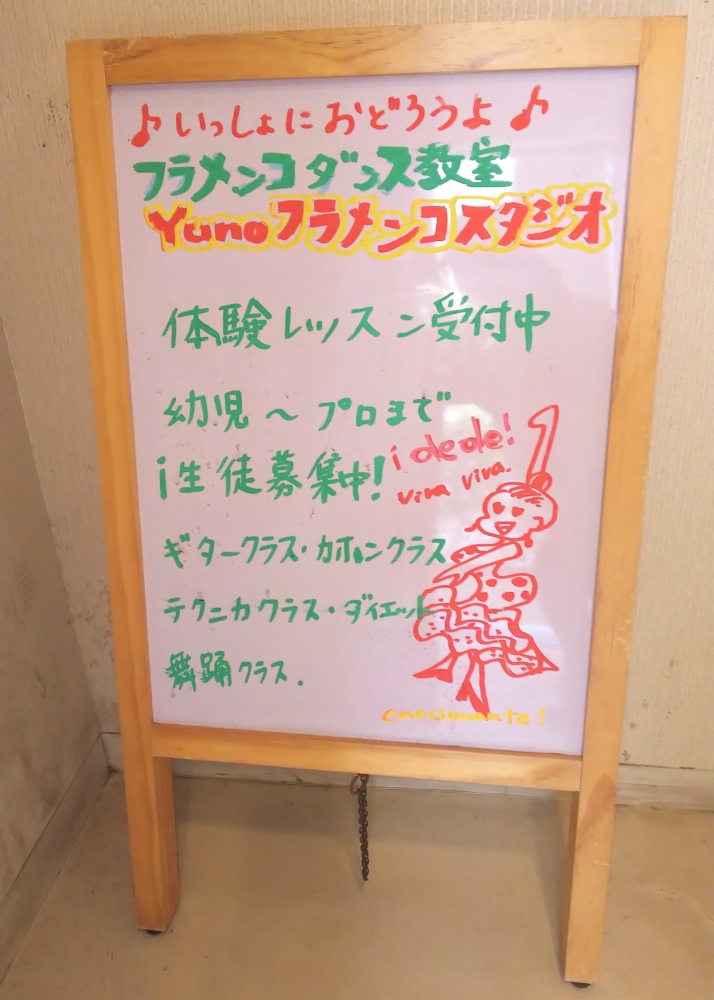 ♪いっしょにおどろうよ♪
フラメンコダンス教室
Yunoフラメンコスタジオ
体験レッスン受付中
幼児～プロまで
¡生徒募集中!
¡ dede!
viva viva.
ギタークラス・カホンクラス
テクニカクラス・ダイエット
舞踊クラス.
emocionante!